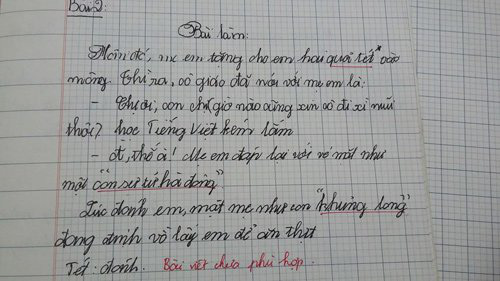 Bài 2:
Bài làm:
Môn đó, mẹ em tặng cho em hai quả tét* vào
mông. Thì ra, cô giáo đã nói với mẹ em là:
- Chị ơi, con chị giờ nào cũng xin cô đi xì mũi
thôi? học Tiếng Việt kém lắm
- Ồ, thế ôi! Mẹ em đáp lại với vẻ mặt như
một "con sư tử hà đông"
Lúc đanh em, mặt mẹ như con "khủng long"
đang định vồ lấy em để ăn thịt
Tét: đanh. Bài viết chưa phù hợp.